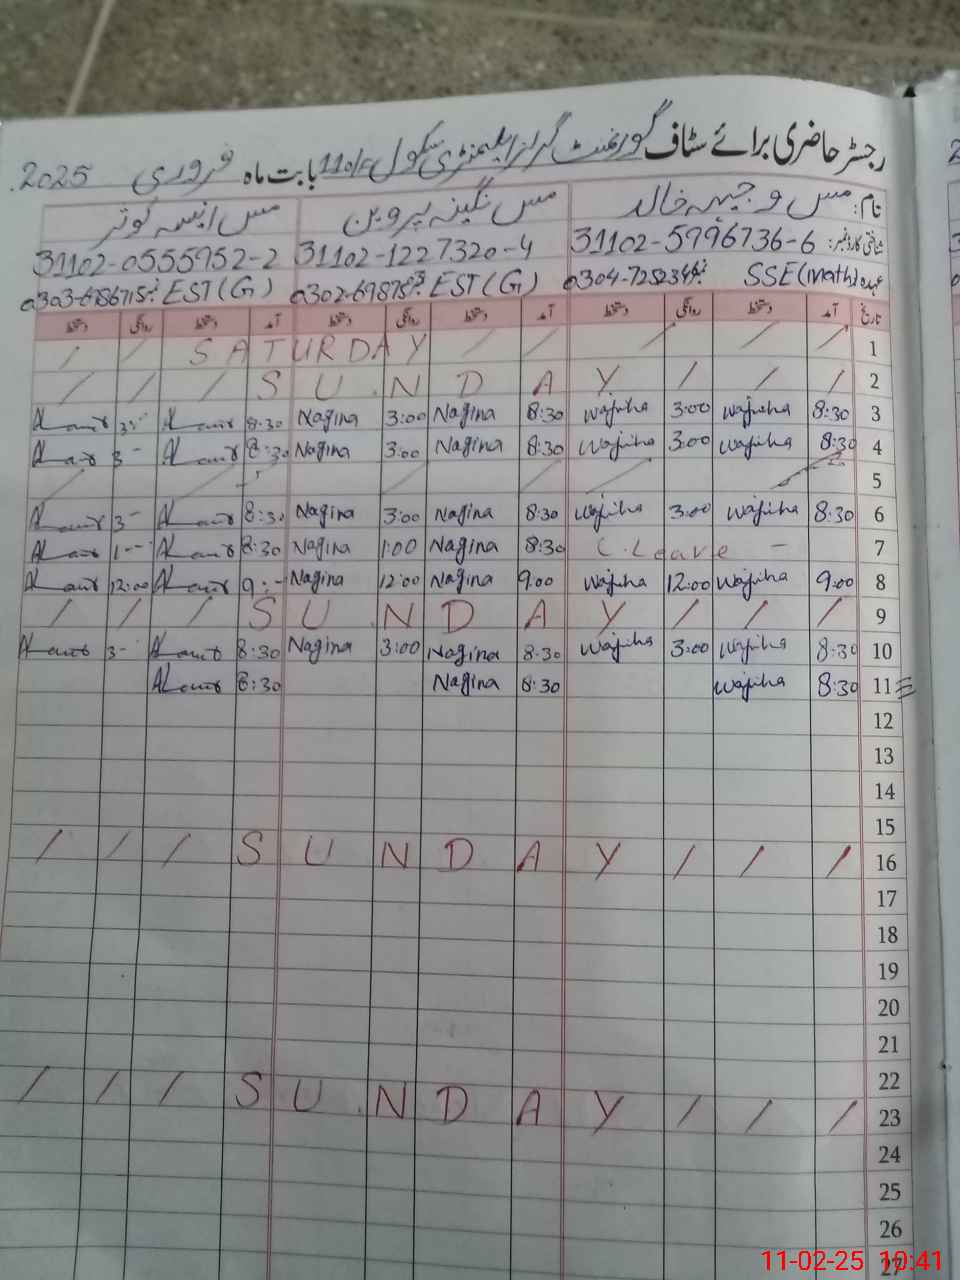 رجسٹر حاضری برائے سٹاف گورنمنٹ گرلز ایلیمنٹری سکول 110/ بابت ماہ فروری 2025
نام: مس وجیہہ خالد مس نگینہ پروین مس انیسہ کوثر
شناختی کارڈ نمبر: 31102-5996736-6 31102-1227320-4 31102-0555952-2
عہدہ SSE(Math) EST(G) EST(G)
تاریخ آمد دستخط روانگی دستخط آمد دستخط روانگی دستخط آمد دستخط روانگی دستخط
/ / SATURDAY / / / / / 1
/ / / SUNDAY / / / 2
3:- 8:30 Nagina 3:00 Nagina 8:30 Wajiha 3:00 Wajiha 8:30 3
3- 8:30 Nagina 3:00 Nagina 8:30 Wajiha 3:00 Wajiha 8:30 4
5
3- 8:30 Nagina 3:00 Nagina 8:30 Wajiha 3:00 Wajiha 8:30 6
1-- 8:30 Nagina 1:00 Nagina 8:30 C.Leave - 7
12:00 9:- Nagina 12:00 Nagina 9:00 Wajiha 12:00 Wajiha 9:00 8
/ / / SUNDAY / / / 9
3- 8:30 Nagina 3:00 Nagina 8:30 Wajiha 3:00 Wajiha 8:30 10
8:30 Nagina 8:30 Wajiha 8:30 11
12
13
14
15
/ / / SUNDAY / / / 16
17
18
19
20
21
22
/ / / SUNDAY / / / 23
24
25
26
27
11-02-25 10:41